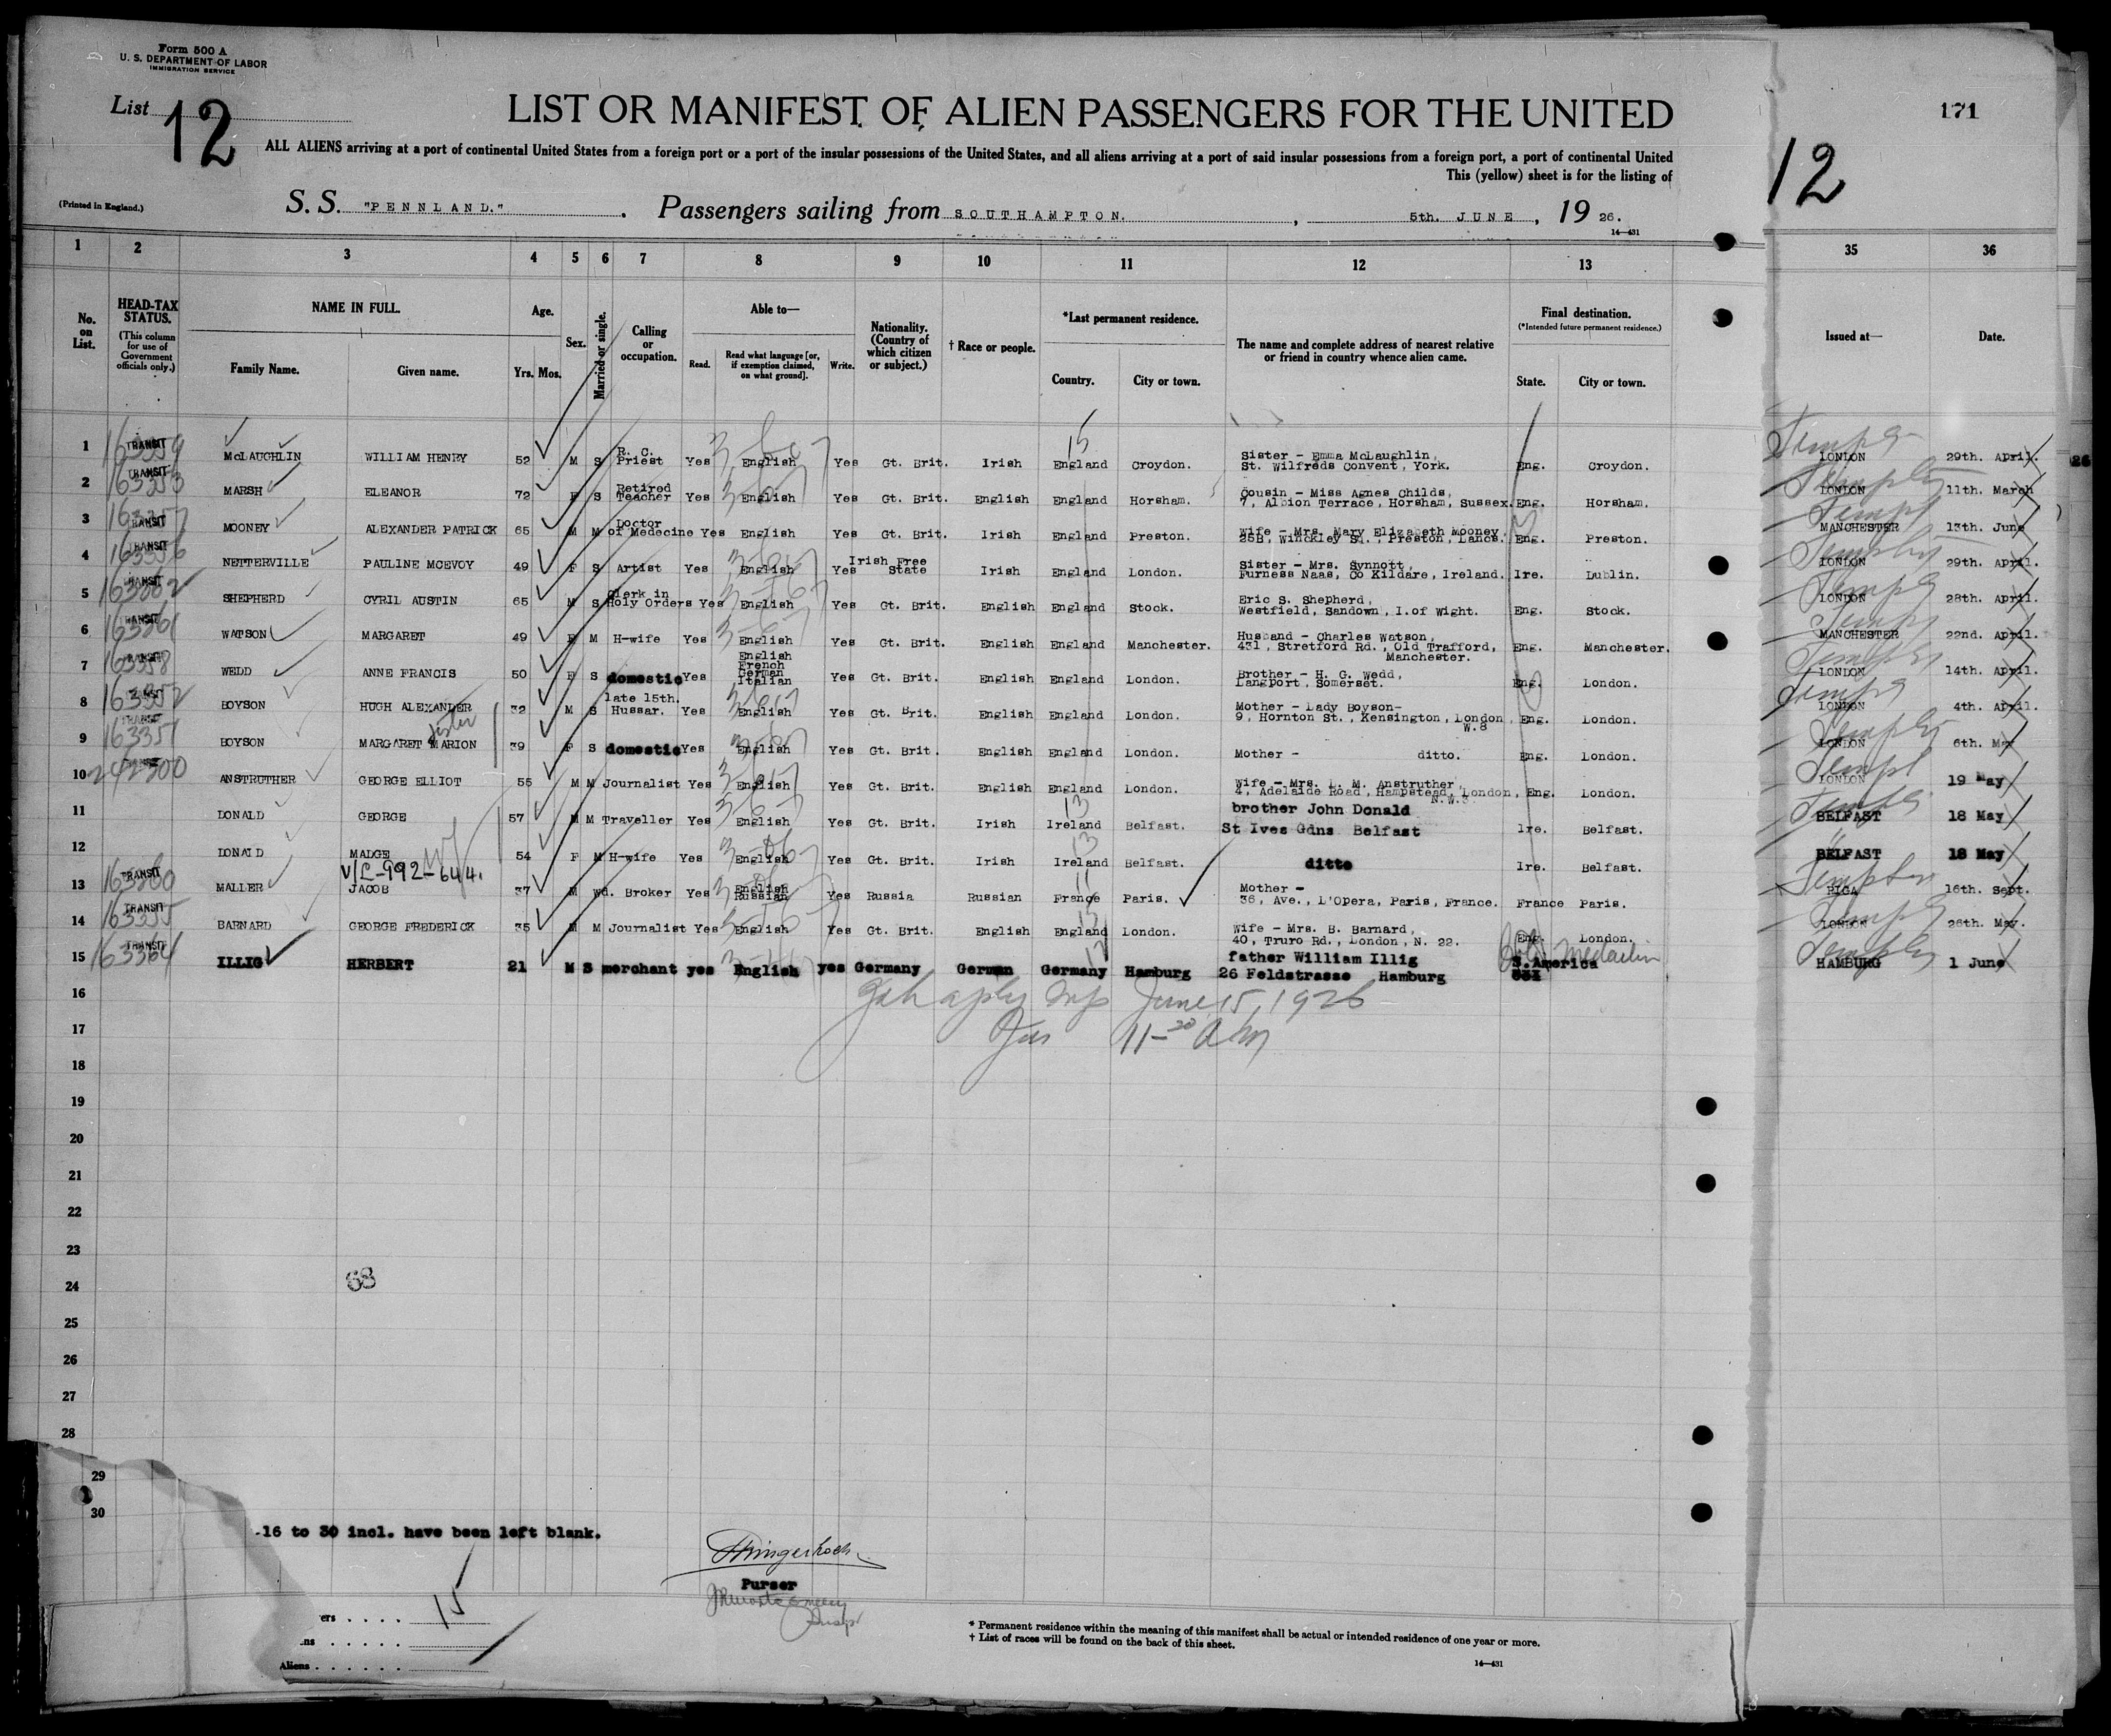 Form 500 A
U. S. DEPARTMENT OF LABOR
IMMIGRATION SERVICE
List 12
LIST OR MANIFEST OF ALIEN PASSENGERS FOR THE UNITED
171
12
ALL ALIENS arriving at a port of continental United States from a foreign port or a port of the insular possessions of the United States, and all aliens arriving at a port of said insular possessions from a foreign port, a port of continental United
This (yellow) sheet is for the listing of
(Printed in England.)
S. S. "PENNLAND." . Passengers sailing from SOUTHAMPTON. , 5th. JUNE , 19 26.
14—431
1 2 3 4 5 6 7 8 9 10 11 12 13 35 36
No. on List.
HEAD-TAX STATUS.
(This column for use of Government officials only.)
NAME IN FULL.
Family Name. Given name.
Age.
Yrs. Mos.
Sex.
Married or single.
Calling or occupation.
Able to—
Read. Read what language [or, if exemption claimed, on what ground]. Write.
Nationality. (Country of which citizen or subject.)
† Race or people.
*Last permanent residence.
Country. City or town.
The name and complete address of nearest relative or friend in country whence alien came.
Final destination.
(*Intended future permanent residence.)
State. City or town.
Issued at— Date.
1 163359 TRANSIT McLAUGHLIN WILLIAM HENRY 52 M S R. C. Priest Yes English Yes Gt. Brit. Irish England Croydon. Sister - Emma McLaughlin, St. Wilfreds Convent, York. Eng. Croydon. LONDON 29th. April.
2 163353 TRANSIT MARSH ELEANOR 72 F S Retired Teacher Yes English Yes Gt. Brit. English England Horsham. Cousin - Miss Agnes Childs, 7, Albion Terrace, Horsham, Sussex. Eng. Horsham. LONDON 11th. March
3 163357 TRANSIT MOONEY ALEXANDER PATRICK 65 M M Doctor of Medecine Yes English Yes Gt. Brit. Irish England Preston. Wife - Mrs. Mary Elizabeth Mooney, 25B, Winckley Sq., Preston, Lancs. Eng. Preston. MANCHESTER 13th. June
4 163356 TRANSIT NETTERVILLE PAULINE MCEVOY 49 F S Artist Yes English Yes Irish Free State Irish England London. Sister - Mrs. Synnott, Furness Naas, Co Kildare, Ireland. Ire. Dublin. LONDON 29th. April.
5 163362 TRANSIT SHEPHERD CYRIL AUSTIN 65 M S Clerk in Holy Orders Yes English Yes Gt. Brit. English England Stock. Eric S. Shepherd, Westfield, Sandown, I.of Wight. Eng. Stock. LONDON 28th. April.
6 163361 TRANSIT WATSON MARGARET 49 F M H-wife Yes English Yes Gt. Brit. English England Manchester. Husband - Charles Watson, 431, Stretford Rd., Old Trafford, Manchester. Eng. Manchester. MANCHESTER 22nd. April.
7 163358 TRANSIT WEDD ANNE FRANCIS 50 F S domestic Yes English French German Italian Yes Gt. Brit. English England London. Brother - H. G. Wedd, Langport, Somerset. Eng. London. LONDON 14th. April.
8 163352 TRANSIT BOYSON HUGH ALEXANDER 32 M S late 15th. Hussar. Yes English Yes Gt. Brit. English England London. Mother - Lady Boyson- 9, Hornton St., Kensington, London, W.8 Eng. London. LONDON 4th. April.
9 163351 TRANSIT BOYSON MARGARET MARION sister 39 F S domestic Yes English Yes Gt. Brit. English England London. Mother - ditto. Eng. London. LONDON 6th. May
10 242300 ANSTRUTHER GEORGE ELLIOT 55 M M Journalist Yes English Yes Gt. Brit. English England London. Wife - Mrs. L. M. Anstruther, 4, Adelaide Road, Hampstead, London, N.W.3 Eng. London. LONDON 19 May
11 DONALD GEORGE 57 M M Traveller Yes English Yes Gt. Brit. Irish Ireland Belfast. brother John Donald St Ives Gdns Belfast Ire. Belfast. BELFAST 18 May
12 DONALD MADGE 54 F M H-wife Yes English Yes Gt. Brit. Irish Ireland Belfast. ditto Ire. Belfast. BELFAST 18 May
V/L-992-644.
13 163360 TRANSIT MALLER JACOB 37 M Wd. Broker Yes English Russian Yes Russia Russian France Paris. Mother - 36, Ave., L'Opera, Paris, France. France Paris. RIGA 16th. Sept.
14 163355 TRANSIT BARNARD GEORGE FREDERICK 35 M M Journalist Yes English Yes Gt. Brit. English England London. Wife - Mrs. B. Barnard, 40, Truro Rd., London, N. 22. Eng. London. LONDON 26th. May.
15 163364 TRANSIT ILLIG HERBERT 21 M S merchant yes English yes Germany German Germany Hamburg father William Illig 26 Feldstrasse Hamburg S.America HAMBURG 1 June
16
June 15, 1926
17
11-20 AM
18
19
20
21
22
23
24
68
25
26
27
28
29
30
-16 to 30 incl. have been left blank.
Purser
ers . . . . 15
ns . . . . .
Aliens . . . . . .
* Permanent residence within the meaning of this manifest shall be actual or intended residence of one year or more.
† List of races will be found on the back of this sheet.
14—431